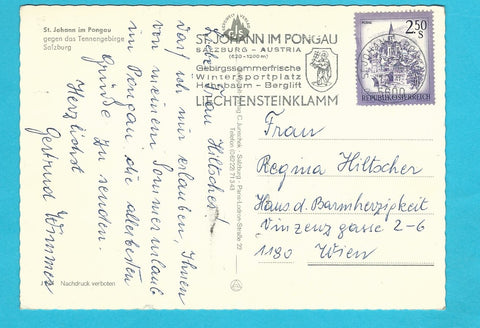 St. Johann im Pongau
gegen das Tennengebirge
Salzburg
ST. JOHANN IM PONGAU
SALZBURG - AUSTRIA
(620-1200m)
Gebirgssommerfrische
Wintersportplatz
Hallenbaum - Berglift
LIECHTENSTEINKLAMM
2.50
S
REPUBLIK ÖSTERREICH
5600
Liebe Frau Hiltscher!
Darf ich mir erlauben, Ihnen
von meinem Sommerurlaub
im Pongau die allerbesten
Grüße zu senden.
Herzlichst
Gertrud Wimmer
Salzburg - Paris-Lodron-Straße
Telefon (06222) 71343
Nachdruck verboten
Frau
Regina Hiltscher
Haus d. Barmherzigkeit
Vinzenzgasse 2-6
1180 Wien